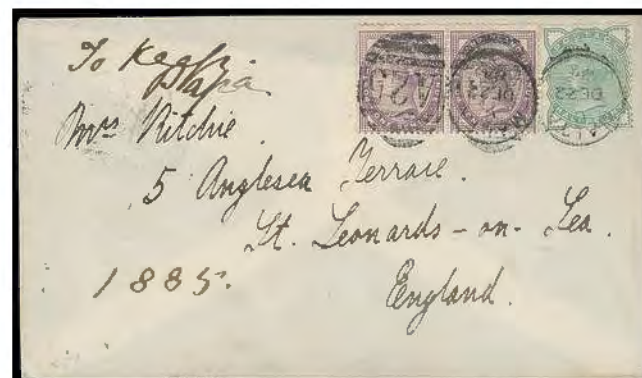 To Keep
Papa
Mrs Ritchie
5 Anglesea Terrace.
St. Leonards-on-Sea.
England.
1885.
A25
MALTA
DE 22
MALTA
DE 22